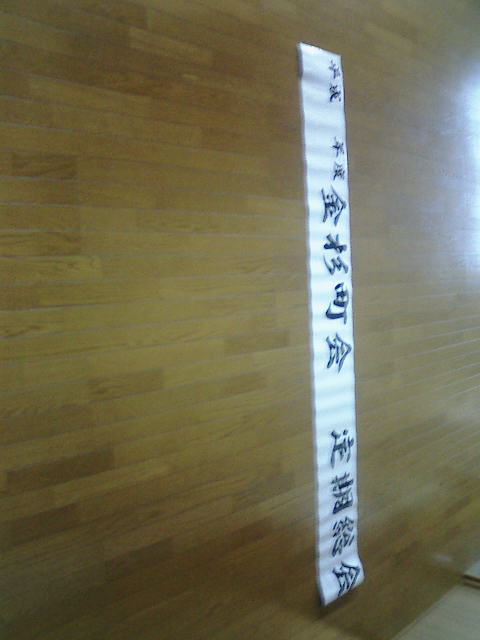 平成 年度 金杉町会 定期総会